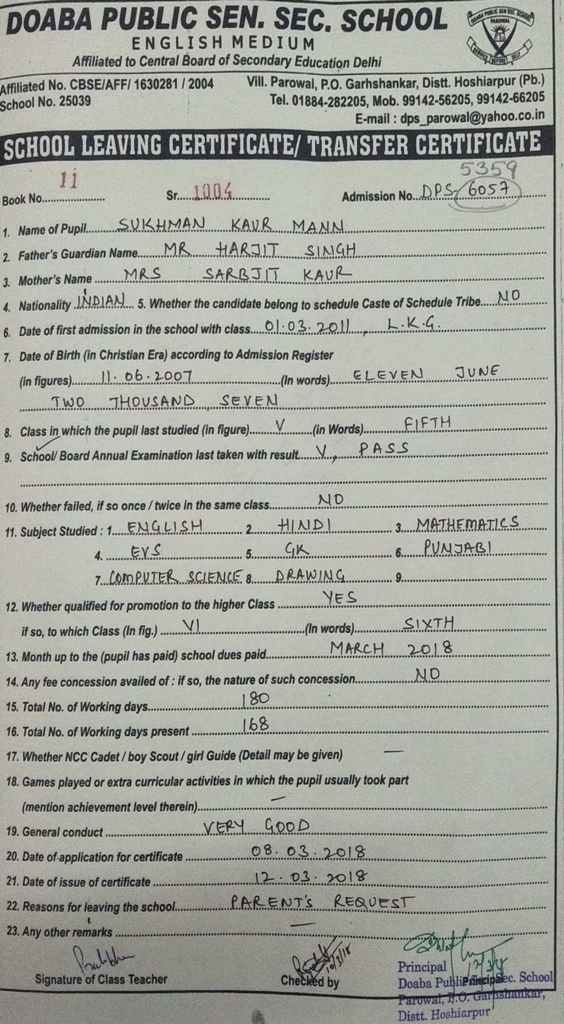 DOABA PUBLIC SEN. SEC. SCHOOL
ENGLISH MEDIUM
Affiliated to Central Board of Secondary Education Delhi
Affiliated No. CBSE/AFF/ 1630281 / 2004
School No. 25039
Vill. Parowal, P.O. Garhshankar, Distt. Hoshiarpur (Pb.)
Tel. 01884-282205, Mob. 99142-56205, 99142-66205
E-mail : dps_parowal@yahoo.co.in
SCHOOL LEAVING CERTIFICATE/ TRANSFER CERTIFICATE
5359
Book No. 11 Sr. 1004 Admission No. DPS-6057
1. Name of Pupil SUKHMAN KAUR MANN
2. Father's Guardian Name MR HARJIT SINGH
3. Mother's Name MRS SARBJIT KAUR
4. Nationality INDIAN 5. Whether the candidate belong to schedule Caste of Schedule Tribe NO
6. Date of first admission in the school with class 01.03.2011, L.K.G.
7. Date of Birth (in Christian Era) according to Admission Register
(in figures) 11.06.2007 (In words) ELEVEN JUNE
TWO THOUSAND SEVEN
8. Class in which the pupil last studied (in figure) V (in Words) FIFTH
9. School/ Board Annual Examination last taken with result V, PASS
10. Whether failed, if so once / twice in the same class NO
11. Subject Studied : 1. ENGLISH 2 HINDI 3. MATHEMATICS
4. EVS 5. GK 6. PUNJABI
7. COMPUTER SCIENCE 8 DRAWING 9.
12. Whether qualified for promotion to the higher Class YES
if so, to which Class (In fig.) VI (In words) SIXTH
13. Month up to the (pupil has paid) school dues paid MARCH 2018
14. Any fee concession availed of : if so, the nature of such concession NO
15. Total No. of Working days 180
16. Total No. of Working days present 168
17. Whether NCC Cadet / boy Scout / girl Guide (Detail may be given) —
18. Games played or extra curricular activities in which the pupil usually took part
(mention achievement level therein) —
19. General conduct VERY GOOD
20. Date of application for certificate 08.03.2018
21. Date of issue of certificate 12.03.2018
22. Reasons for leaving the school PARENT'S REQUEST
23. Any other remarks —
Signature of Class Teacher
Checked by
Principal
Principal
Doaba Public Sec. School
Parowal, P.O. Garhshankar,
Distt. Hoshiarpur